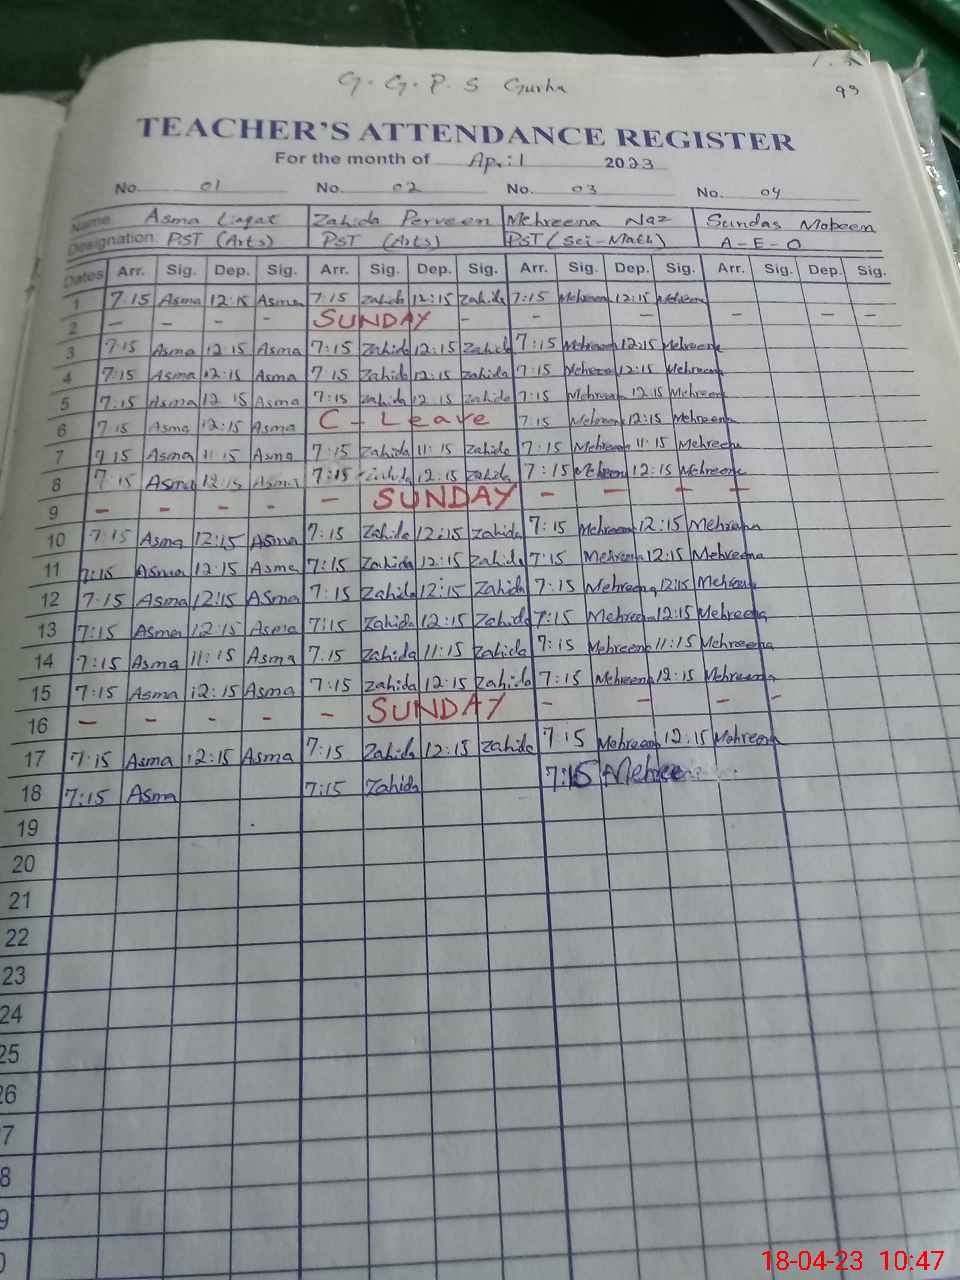 G. G. P. S Gurha
93
TEACHER'S ATTENDANCE REGISTER
For the month of April 2023
No. 01 No. 02 No. 03 No. 04
Name Asma Liaqat Zahida Perveen Mehreena Naz Sundas Mobeen
Designation: PST (Arts) PST (Arts) PST (Sci-Math) A-E-O
Dates Arr. Sig. Dep. Sig. Arr. Sig. Dep. Sig. Arr. Sig. Dep. Sig. Arr. Sig. Dep. Sig.
1 7:15 Asma 12:15 Asma 7:15 Zahida 12:15 Zahida 7:15 Mehreena 12:15 Mehreena
2 - - - - SUNDAY - - - - - - -
3 7:15 Asma 12:15 Asma 7:15 Zahida 12:15 Zahida 7:15 Mehreena 12:15 Mehreena
4 7:15 Asma 12:15 Asma 7:15 Zahida 12:15 Zahida 7:15 Mehreena 12:15 Mehreena
5 7:15 Asma 12:15 Asma 7:15 Zahida 12:15 Zahida 7:15 Mehreena 12:15 Mehreena
6 7:15 Asma 12:15 Asma C - Leave 7:15 Mehreena 12:15 Mehreena
7 7:15 Asma 11:15 Asma 7:15 Zahida 11:15 Zahida 7:15 Mehreena 11:15 Mehreena
8 7:15 Asma 12:15 Asma 7:15 Zahida 12:15 Zahida 7:15 Mehreena 12:15 Mehreena
9 - - - - - SUNDAY - - - -
10 7:15 Asma 12:15 Asma 7:15 Zahida 12:15 Zahida 7:15 Mehreena 12:15 Mehreena
11 7:15 Asma 12:15 Asma 7:15 Zahida 12:15 Zahida 7:15 Mehreena 12:15 Mehreena
12 7:15 Asma 12:15 Asma 7:15 Zahida 12:15 Zahida 7:15 Mehreena 12:15 Mehreena
13 7:15 Asma 12:15 Asma 7:15 Zahida 12:15 Zahida 7:15 Mehreena 12:15 Mehreena
14 7:15 Asma 11:15 Asma 7:15 Zahida 11:15 Zahida 7:15 Mehreena 11:15 Mehreena
15 7:15 Asma 12:15 Asma 7:15 Zahida 12:15 Zahida 7:15 Mehreena 12:15 Mehreena
16 - - - - - SUNDAY - - - -
17 7:15 Asma 12:15 Asma 7:15 Zahida 12:15 Zahida 7:15 Mehreena 12:15 Mehreena
18 7:15 Asma 7:15 Zahida 7:15 Mehreena
19
20
21
22
23
24
25
26
7
8
9
0
18-04-23 10:47